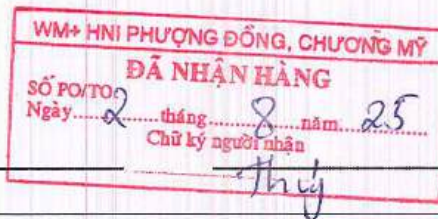 WM+ HNI PHƯỢNG ĐỒNG, CHƯƠNG MỸ
ĐÃ NHẬN HÀNG
SỐ PO/TO
Ngày....2....tháng....8....năm....25
Chữ ký người nhận
Thúy